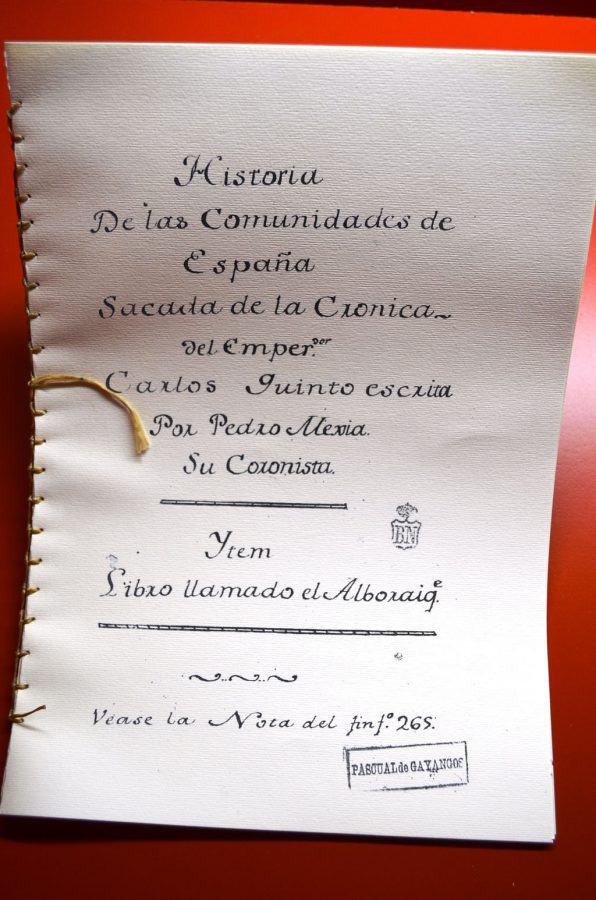 Historia
De las Comunidades de
España
Sacada de la Cronica
del Emper.ᵈᵒʳ
Carlos Quinto escrita
Por Pedro Mexia.
Su Coronista.
Ytem
Libro llamado el Alboraiq.ᵉ
BN
Véase la Nota del fin f.º 265.
PASCUAL de GAYANGOS